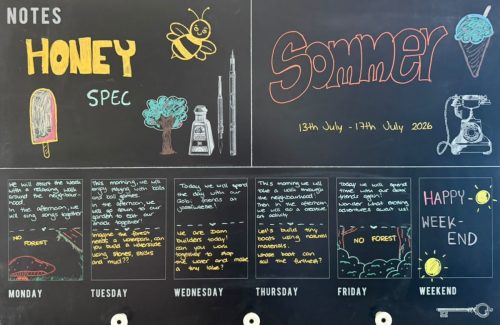 NOTES
HONEY
SPEC
Sommer
13th July - 17th July 2026
We will start the week
with a relaxing walk
around the neighbour
hood.
In the afternoon, we
will sing songs together
NO FOREST
MONDAY
This morning, we will
enjoy playing with balls
and ball games.
In the afternoon, we
will go to our
garden to eat our
snack together
In the forest
needs a waterpark, can
you build a waterslide
using stones, sticks
and mud??
TUESDAY
Today we will spend
the day with our
friends at
WEDNESDAY
we are Dam
builders today!
can you work
together to stop
the water and make
a tiny lake?
This morning, we will
take a walk through
the neighbourhood.
Then in the afternoon,
we will do a creative
art activity
Let's build tiny
boats using natural
materials.
whose boat can
sail the furthest?
THURSDAY
Today we will spend
time with our
friends again!
wonder what exciting
adventures await us!
NO FOREST
FRIDAY
HAPPY
WEEK-
END
WEEKEND